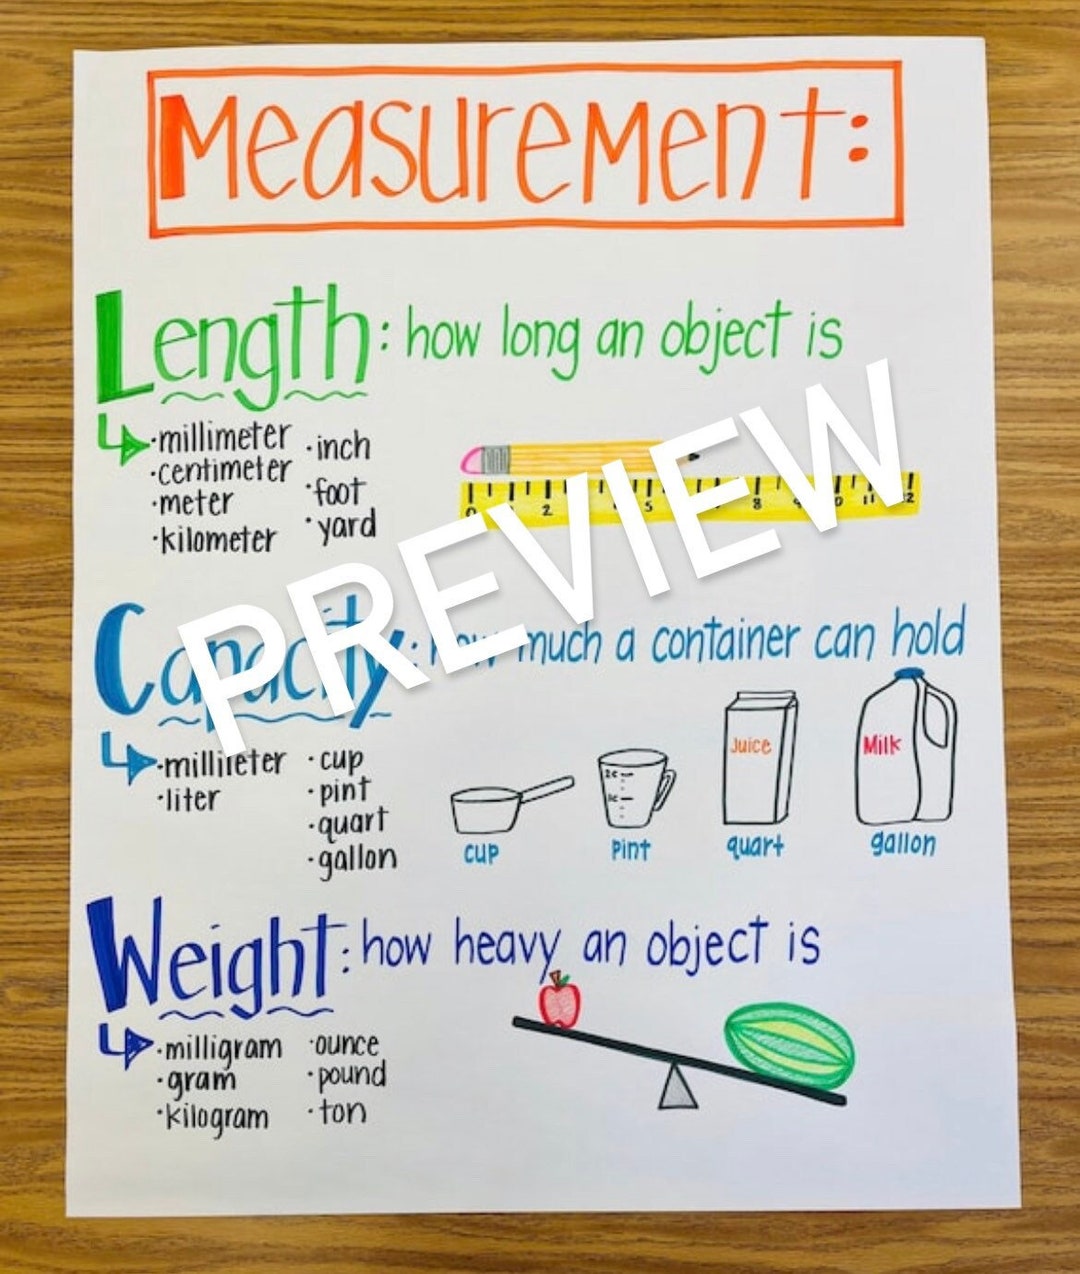 Measurement:
Length: how long an object is
·millimeter ·inch
·centimeter ·foot
·meter ·yard
·kilometer
0 2 5 8 11 12
PREVIEW
Capacity: how much a container can hold
·milliliter ·cup
·liter ·pint
·quart
·gallon
Juice
Milk
cup pint quart gallon
Weight: how heavy an object is
·milligram ·ounce
·gram ·pound
·kilogram ·ton